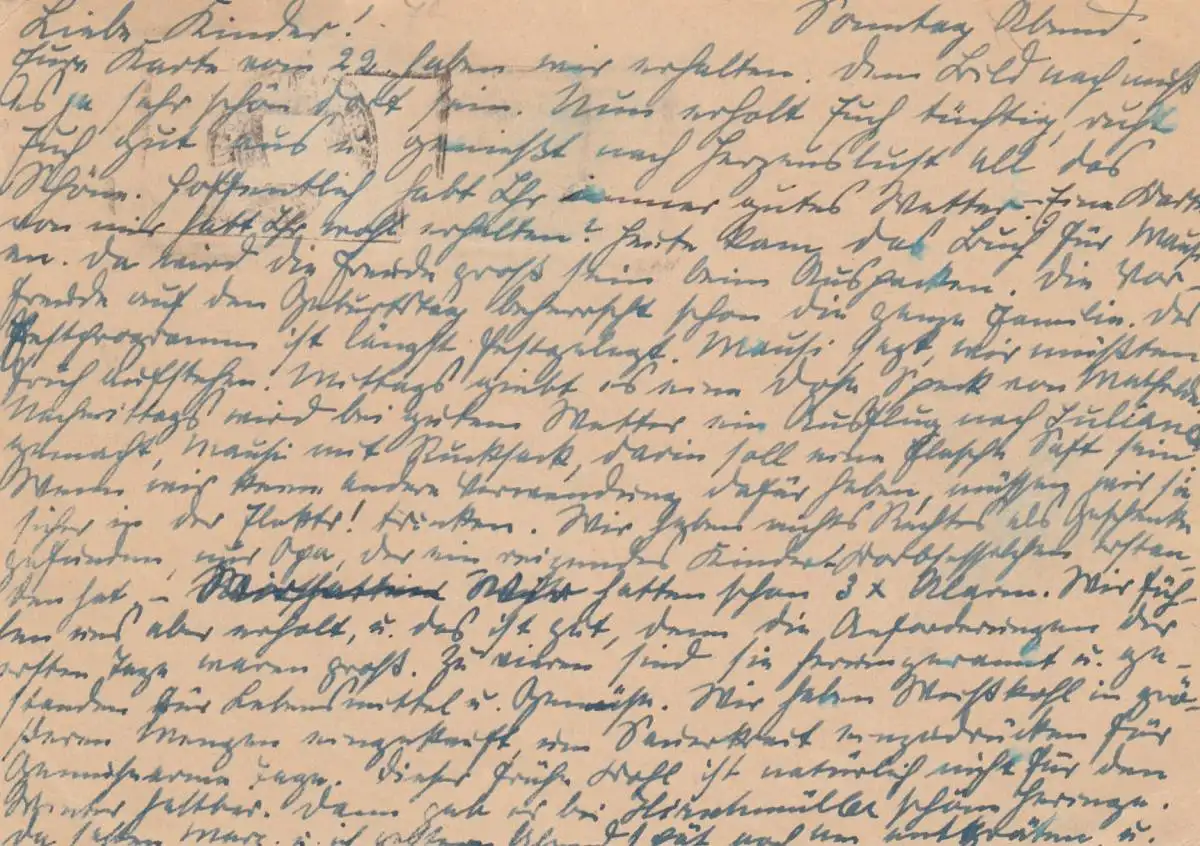 Liebe Kinder! Sonntag Abend.
Eure Karte vom 22. haben wir erhalten. Dem Bild nach muß
es ja sehr schön dort sein. Nun erholt Euch tüchtig, ruht
Euch gut aus u. genießt nach Herzenslust all das
Schöne. Hoffentlich habt Ihr immer gutes Wetter. Eine Karte
von mir habt Ihr wohl erhalten? Heute kam das Buch für Mausi
an. Da wird die Freude groß sein beim Auspacken. Die Vor-
freude auf den Geburtstag beherrscht schon die ganze Familie. Das
Festprogramm ist längst festgelegt. Mausi sagt, wir müßten
früh aufstehen. Mittags giebt es eine Dose Speck von
Nachmittags wird bei gutem Wetter ein Ausflug nach
gemacht, Mausi mit Rucksack, darin soll eine Flasche Saft sein
Wenn wir keine andere Verwendung dafür haben, müssen wir sie
sicher in der trinken. Wir haben nichts Rechtes als Geschenke
gefunden, nur Opa, der ein reizendes Kinder-Korbsesselchen erstan-
den hat, – Wir hatten schon 3 x Alarm. Wir füh-
len uns aber erholt, u. das ist gut, denn die Anforderungen der
ersten Tage waren groß. Zu vieren sind sie herumgerannt u. ge-
standen für Lebensmittel u. Gemüse. Wir haben Weißkohl in grö-
ßeren Mengen eingekauft, um Sauerkraut einzudrücken für
gemüsearme Tage. Dieser frühe Kohl ist natürlich nicht für den
Winter haltbar. Dann gab es bei schöne Heringe.
Da haben u. ich gestern Abend spät noch am u.